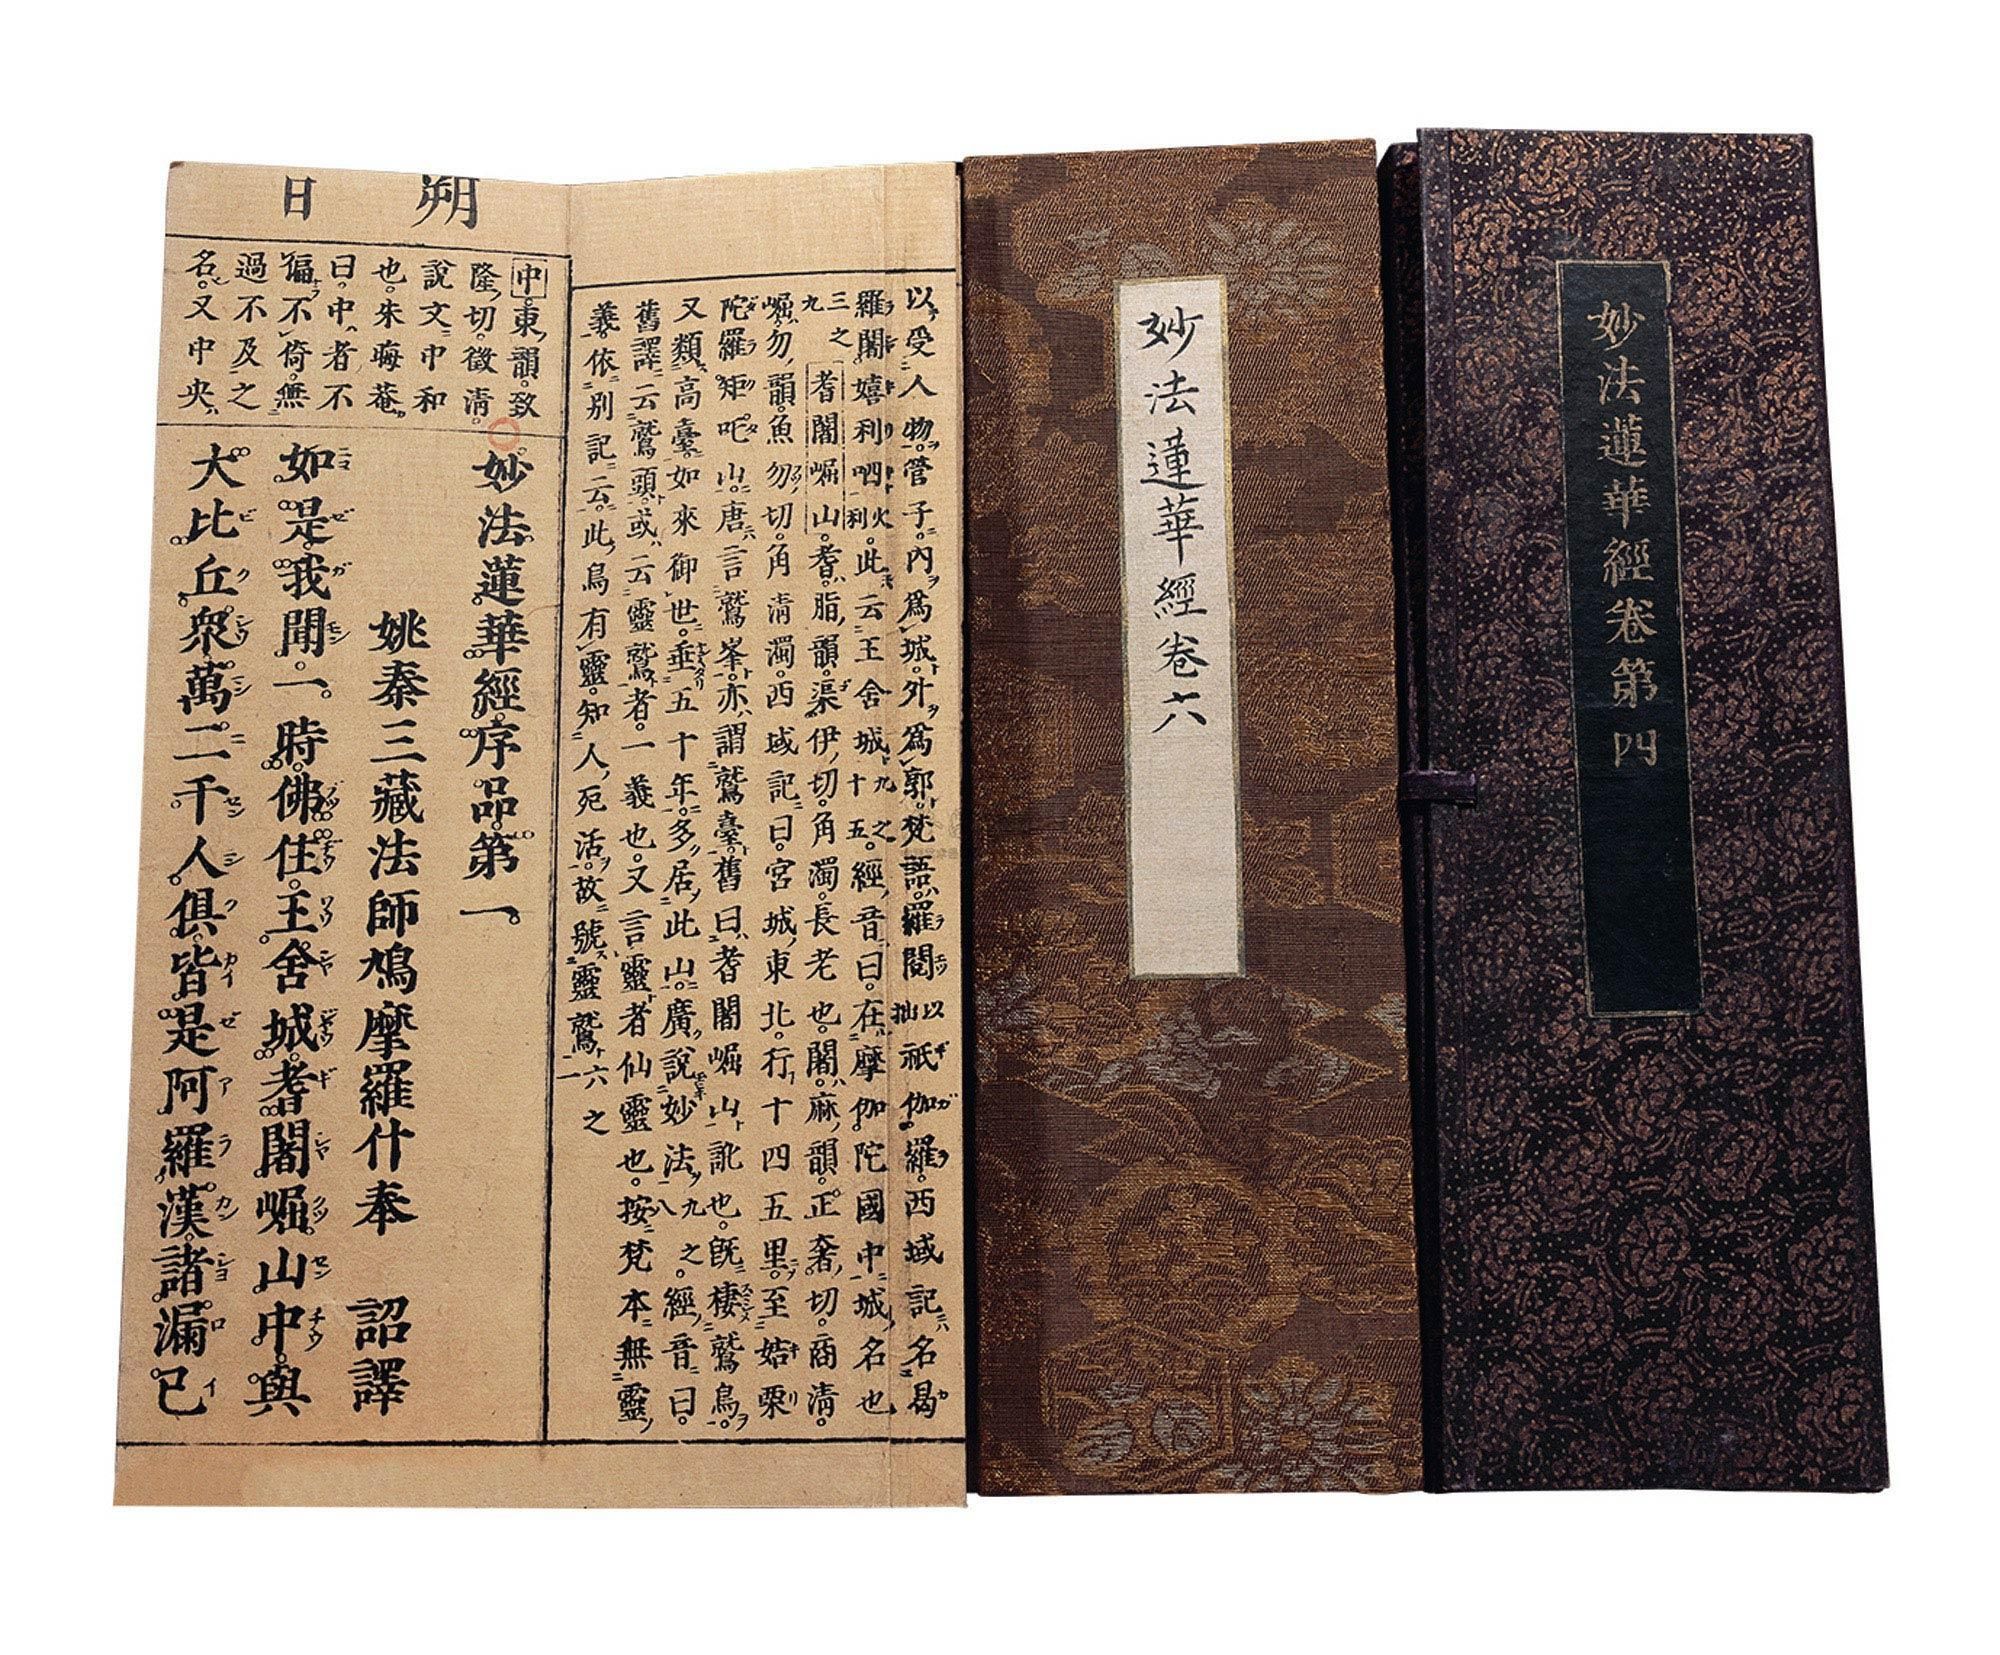 妙法蓮華經卷第四
妙法蓮華經卷六
以受人物。管子內爲城外爲郭。梵語羅閱以拙祇伽羅。西域記名曷
羅闍嬉利呬火利。此云王舍城十五九之。經音曰。在摩伽陀國中城名也
三之九 耆闍崛山。耆脂韻。渠伊切。角濁。長老也。闍麻韻。正奢切。商淸。
崛勿韻。魚勿切。角淸濁。西域記曰。宮城東北。行十四五里。至姞栗
陀羅矩吒山。唐言鷲峯。亦謂鷲臺。舊曰耆闍崛山訛也。旣棲鷲鳥。
又類高臺。如來御世。垂五十年。多居此山。廣說妙法八九之。經音曰。
舊譯云鷲頭。或云靈鷲者。一義也。又言靈者仙靈也。按梵本無靈
義。依別記云。此鳥有靈。知人死活。故號靈鷲六之一
朔日
中。東韻。致
隆切。徵淸。
說文中和
也。朱晦菴
曰。中者不
偏不倚。無
過不及之
名。又中央。
妙法蓮華經序品第一。
姚秦三藏法師鳩摩羅什奉 詔譯
如是我聞。一時佛住王舍城耆闍崛山中。與
大比丘衆萬二千人俱。皆是阿羅漢。諸漏已